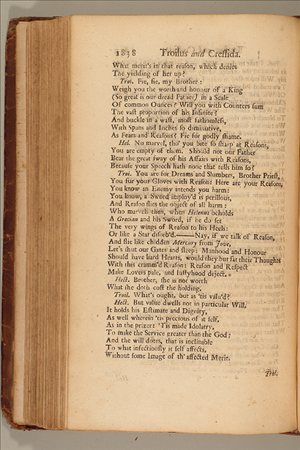 1838 Troilus and Cressida.
What merit's in that reason, which denies
The yielding of her up?
Troi. Fie, fie, my Brother:
Weigh you the worth and honour of a King
(So great as our dread Father) in a Scale
Of common Ounces? Will you with Counters sum
The vast proportion of his Infinite?
And buckle in a waste, most fathomless,
With Spans and Inches so diminutive,
As Fears and Reasons? Fie for godly shame.
Hel. No marvel, tho' you bite so sharp at Reasons,
You are empty of them. Should not our Father
Bear the great sway of his Affairs with Reasons,
Because your Speech hath none that tells him so?
Troi. You are for Dreams and Slumbers, Brother Priest,
You fur your Gloves with Reasons: Here are your Reasons,
You know an Enemy intends you harm;
You know, a Sword imploy'd is perillous,
And Reason flies the object of all harm:
Who marvels then, when Helenus beholds
A Grecian and his Sword, if he do set
The very wings of Reason to his Heels:
Or like a Star disorb'd—Nay, if we talk of Reason,
And flie like chidden Mercury from Jove,
Let's shut our Gates and sleep: Manhood and Honour
Should have hard Hearts, would they but fat their Thoughts
With this cramm'd Reason: Reason and Respect
Make Lovers pale, and lustyhood deject.
Hect. Brother, she is not worth
What she doth cost the holding.
Troil. What's ought, but as 'tis valu'd?
Hect. But value dwells not in particular Will,
It holds his Estimate and Dignity,
As well wherein 'tis precious of it self,
As in the prizer: 'Tis made Idolatry,
To make the Service greater than the God;
And the will dotes, that is inclinable
To what infectiously it self affects,
Without some Image of th' affected Merit.
Troi.